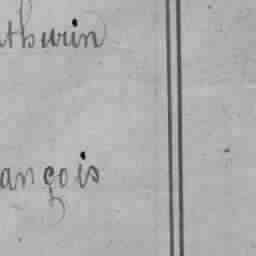 thurin
ançois